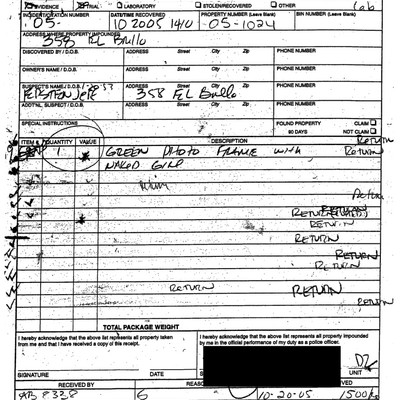 EVIDENCE TRIAL LABORATORY STOLEN/RECOVERED OTHER Lab
INCIDENT/CITATION NUMBER DATE/TIME RECOVERED PROPERTY NUMBER (Leave Blank) BIN NUMBER (Leave Blank)
05- 10 2005 1410 05-1024
ADDRESS WHERE PROPERTY IMPOUNDED
358 EL Brillo
DISCOVERED BY / D.O.B. ADDRESS Street City Zip PHONE NUMBER
OWNER'S NAME / D.O.B. ADDRESS Street City Zip PHONE NUMBER
SUSPECT'S NAME / D.O.B. ADDRESS Street City Zip PHONE NUMBER
358 EL Brillo
ADDTNL. SUSPECT / D.O.B. ADDRESS Street City Zip PHONE NUMBER
SPECIAL INSTRUCTIONS FOUND PROPERTY CLAIM
90 DAYS NOT CLAIM
Return
ITEM # QUANTITY VALUE DESCRIPTION
1 GREEN PHOTO FRAME WITH Return
NAKED GIRL
Return
RETURN
RETURN
RETURN
RETURN
RETURN
RETURN RETURN
RETURN
TOTAL PACKAGE WEIGHT
I hereby acknowledge that the above list represents all property taken
from me and that I have received a copy of this receipt.
I hereby acknowledge that the above list represents all property impounded
by me in the official performance of my duty as a police officer.
SIGNATURE DATE UNIT
RECEIVED BY
10-20-05 1500